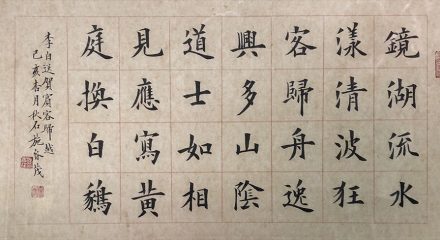 鏡湖流水
漾清波狂
客歸舟逸
興多山陰
道士如相
見應寫黃
庭換白鵝
李白送賀賓客歸越
己亥杏月秋石施